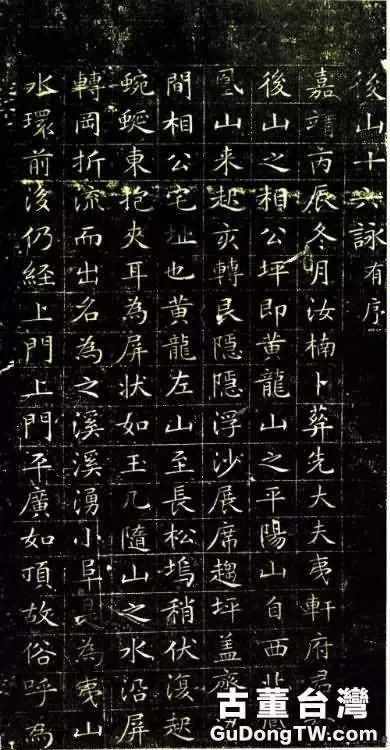 後山十六詠有序
嘉靖丙辰冬月汝楠卜葬先大夫夷軒府君
後山之相公坪即黃龍山之平陽山自西北鳳
凰山來起亥轉艮隱隱浮沙展席趨坪蓋齊
間相公宅址也黃龍左山至長松塢稍伏復起
蜿蜒東抱夾耳為屏狀如玉几隨山之水沿屏
轉岡折流而出名為之溪溪湧小阜是為夷山
水環前後仍經上門上門平廣如項故俗呼為
古董台灣
GuDongTW.com